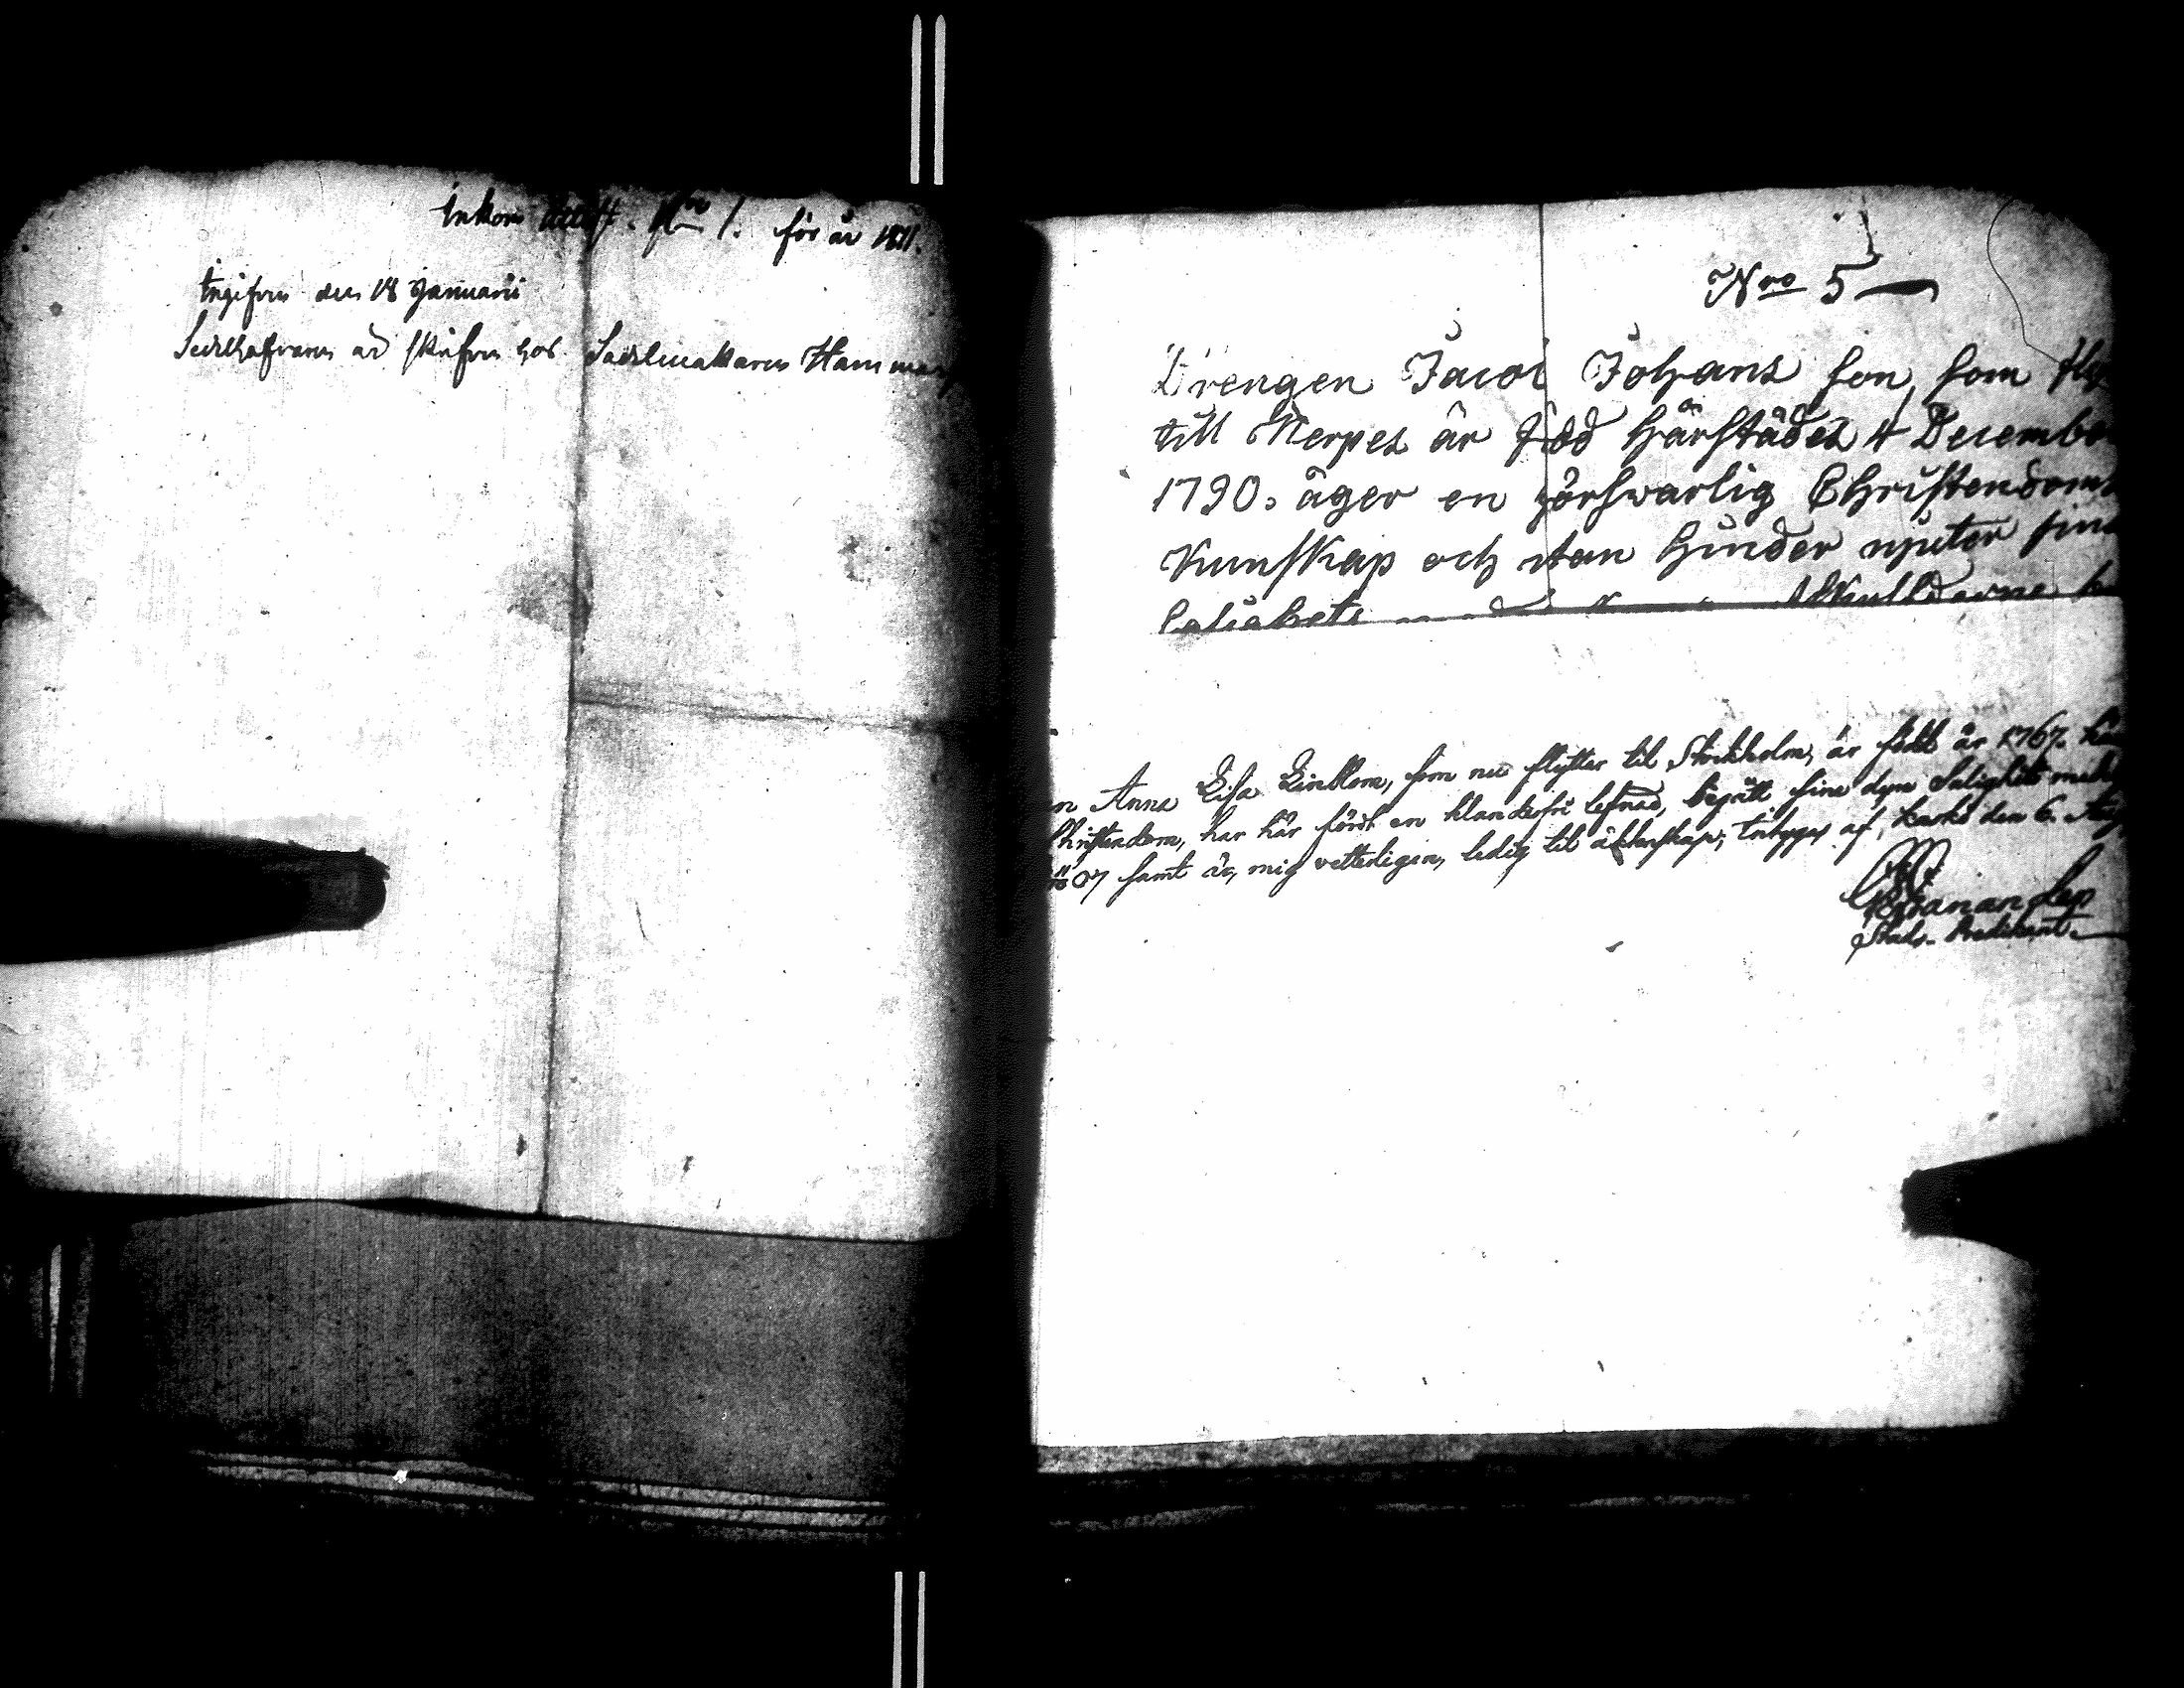 Inkom attest. Nro 1. för år 1811.
Ingifven den 18 Januarii
Sedelhafvaren är skrifven hos Sadelmakaren Hammar
Nro 5
Drengen Jacob Johans son, som
till Nerpes är född härstädes 4 December
1790. äger en försvarlig Christendoms
Kunskap och utan hinder njuter sina
Salighets
Anna Lisa Lindblom, som nu flytter til Stockholm, är född år 1767.
Christendom, har här fördt en klanderfri lefnad, begått sine dyra Salighets medel
1807 samt är, mig vetterligen, ledig til äktenskap; intygges af, Kaskö den 6.
Stads-Predikant.